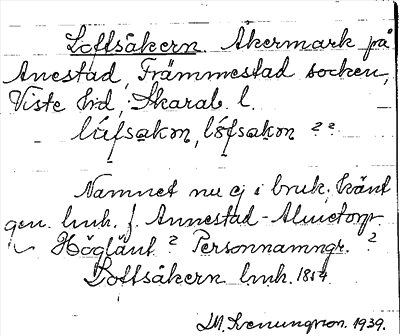 Loftsåkern. Åkermark på
Anestad, Främmestad socken,
Viste hd, Skarab. l.
lúfsakọn, lófsakọn ??
Namnet nu ej i bruk. Känt
gen. lmk. f. Annestad-Almetorp
Höglänt? Personnamngr. ?
Loftsåkern lmk. 1814
M. Svenungsson. 1939.